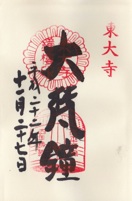 東大寺
大梵鐘
平成二十二年
十一月二十七日